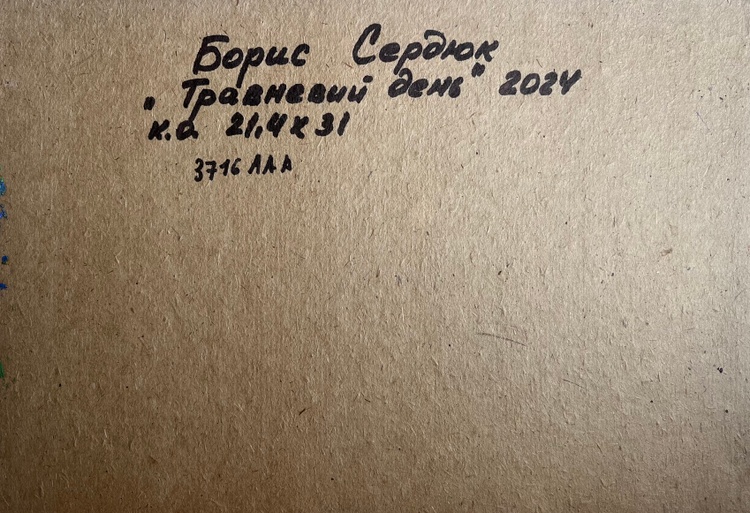 Борис Сердюк
„Травневий день" 2024
к.о. 21,4 х 31
3716 ЛАА